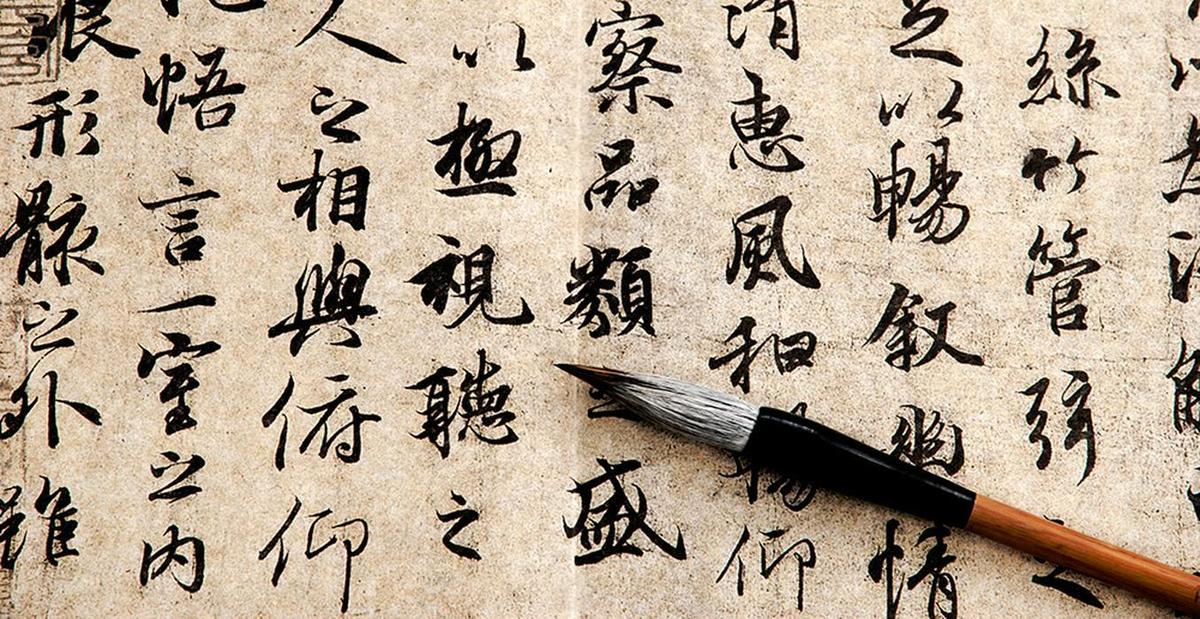 絲竹管弦之
足以暢叙幽情
清惠風和暢仰
察品類之盛
以極視聽之
人之相與俯仰
悟言一室之內
浪形骸之外雖